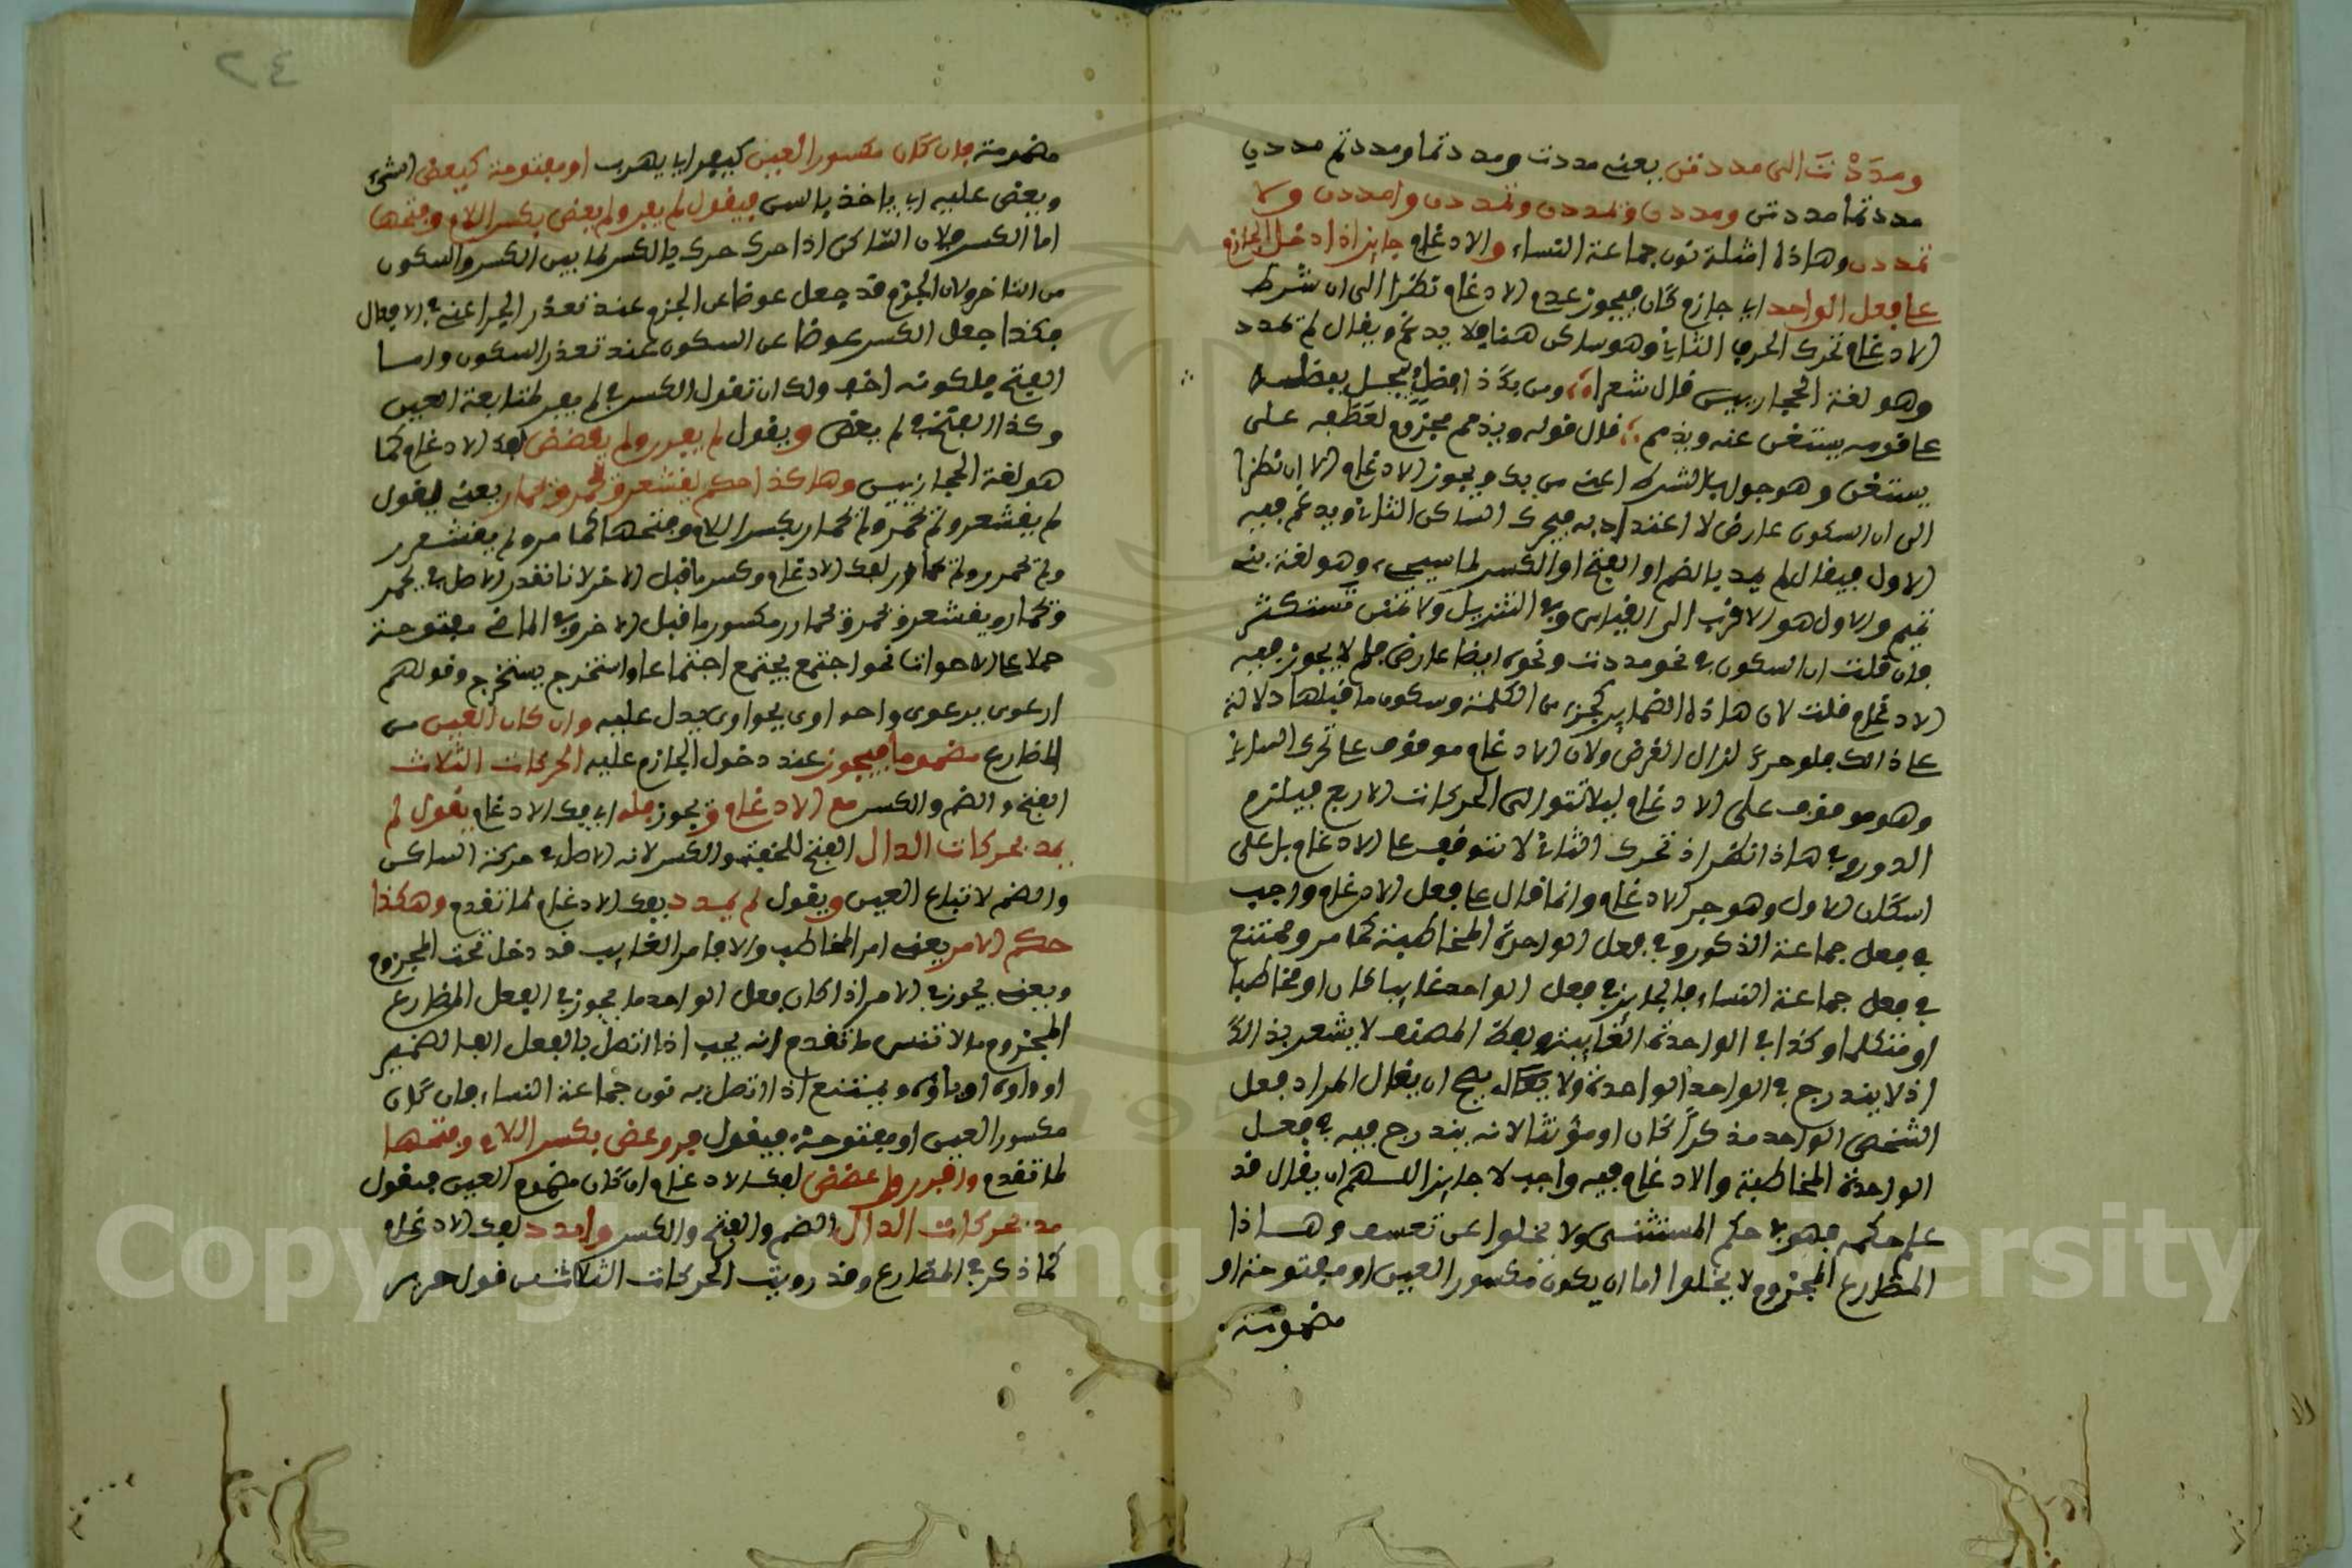 ومدَدْتَ الى مددتن يعنى مددت ومددتما ومددتم مددتي
مددتما مددتن ومددن وتمددن وتمددن وامددن ولا
تمددن وهاذه امثلة نون جماعة النساء والادغام جايز اذا دخل الجازم
على فعل الواحد اي جازم كان فيجوز عدم الادغام نظرا الى ان شرط
الادغام تحرك الحرف الثاني وهو ساكن هنا فلا يدغم ويقال لم يمدد
وهو لغة الحجازيين قال شعرا ومن يك ذا فضل فيبخل بفضله
على قومه يستغن عنه ويذمم قال قوله ويذمم مجزوم لعطفه على
يستغن وهو جواب الشرط اعنى من يك ويجوز الادغام الا ان نظرا
الى ان السكون عارض لا اعتداد به فيحرك الساكن الثاني ويدغم فيه
الاول فيقال لم يمد بالضم او الفتح او الكسر لما سيجيء وهو لغة بنى
تميم والاول هو الاقرب الى القياس وفي التنزيل ولا تمنن تستكثر
فان قلت ان السكون في نحو مددت ونحوه ايضا عارض فلم لا يجوز فيه
الادغام قلت لان هاذه الضماير كجزء من الكلمة وسكون ما قبلها دلالة
على ذالك فلو حرك لزال الغرض ولان الادغام موقوف على تحرك الساكن
وهو موقوف على الادغام ليلا تتوالى الحركات الاربع فيلزم
الدور وفي هاذا نظر اذ تحرك الثاني لا يتوقف على الادغام بل على
اسكان الاول وهو جزء الادغام وانما قال على فعل الادغام واجب
في فعل جماعة الذكور وفي فعل الواحدة المخاطبة كما مر وممتنع
في فعل جماعة النساء فالجايز في فعل الواحد غايبا كان او مخاطبا
او متكلما وكذا في الواحدة الغايبة ولفظ المصنف لا يشعر بذالك
اذ لا يندرج في الواحد الواحدة ولا يصح ان يقال المراد فعل
الشخص الواحد مذكراً كان او مؤنثا لانه يندرج فيه في فعل
الواحدة المخاطبة والادغام فيه واجب لا جايز اللهم ان يقال قد
علم حكمه فهو في حكم المستثنى ولا يخلوا عن تعسف وهاذا
المظارع المجزوم لا يخلوا اما ان يكون مكسور العين او مفتوحة او
مضمومة
٢٤
مضمومة فان كان مكسور العين كيفر اي يهرب او مفتوحة كيعض الشيء
ويعض عليه اي ياخذ بالسن فيقول لم يفر ولم يعض بكسر اللام وفتحها
اما الكسر فلان الساكن اذا حرك حرك بالكسر لما بين الكسر والسكون
من التاخر ولان الجزم قد جعل عوضا عن الجزم عند تعذر الجر اعنى في الافعال
فكذا جعل الكسر عوضا عن السكون عند تعذر السكون واما
الفتح فلكونه اخف ولك ان تقول الكسر في لم يفر لمتابعة العين
وكذا الفتح في لم يعض ويقول لم يفرر ولم يعضض بفك الادغام كما
هو لغة الحجازيين وهاكذا حكم يقشعر وتحمر وتحمار يعنى يقول
لم يقشعر ولم تحمر ولم تحمار بكسر اللام وفتحها كما مر ولم يقشعرر
ولم تحمرر ولم تحمارر بفك الادغام وكسر ما قبل الاخر لانا نقدر الاصل في يحمر
وتحمار ويقشعر وتحمرر وتحمارر مكسور ما قبل الاخر وفي الماضي مفتوحة
حملا على الاخوات نحو اجتمع يجتمع اجتماعا واستخرج يستخرج وقولهم
ارعوى يرعوى واحواوى يحواوى يدل عليه وان كان العين من
المظارع مضموما فيجوز عند دخول الجازم عليه الحركات الثلاث
الفتح والضم والكسر مع الادغام ويجوز فكه اي فك الادغام يقول لم
يمد بحركات الدال الفتح للخفة والكسر لانه الاصل في حركة الساكن
والضم لاتباع العين ويقول لم يمدد بفك الادغام لما تقدم وهكذا
حكم الامر يعنى امر المخاطب والا فامر الغايب قد دخل تحت المجزوم
ويعنى يجوز في الامر اذا كان فعل الواحد ما يجوز في الفعل المظارع
المجزوم فلا تنس ما تقدم انه يجب اذا اتصل بالفعل الف الضمير
او واوه او ياؤه ويمتنع اذا اتصل به نون جماعة النساء فان كان
مكسور العين او مفتوحة فيقول فر وعض بكسر اللام وفتحها
لما تقدم وافرر واعضض بفك الادغام ان كان مضموم العين فيقول
مد بحركات الدال الضم والفتح والكسر وامدد بفك الادغام
كما ذكر في المظارع وقد رويت الحركات الثلاث في قول جرير